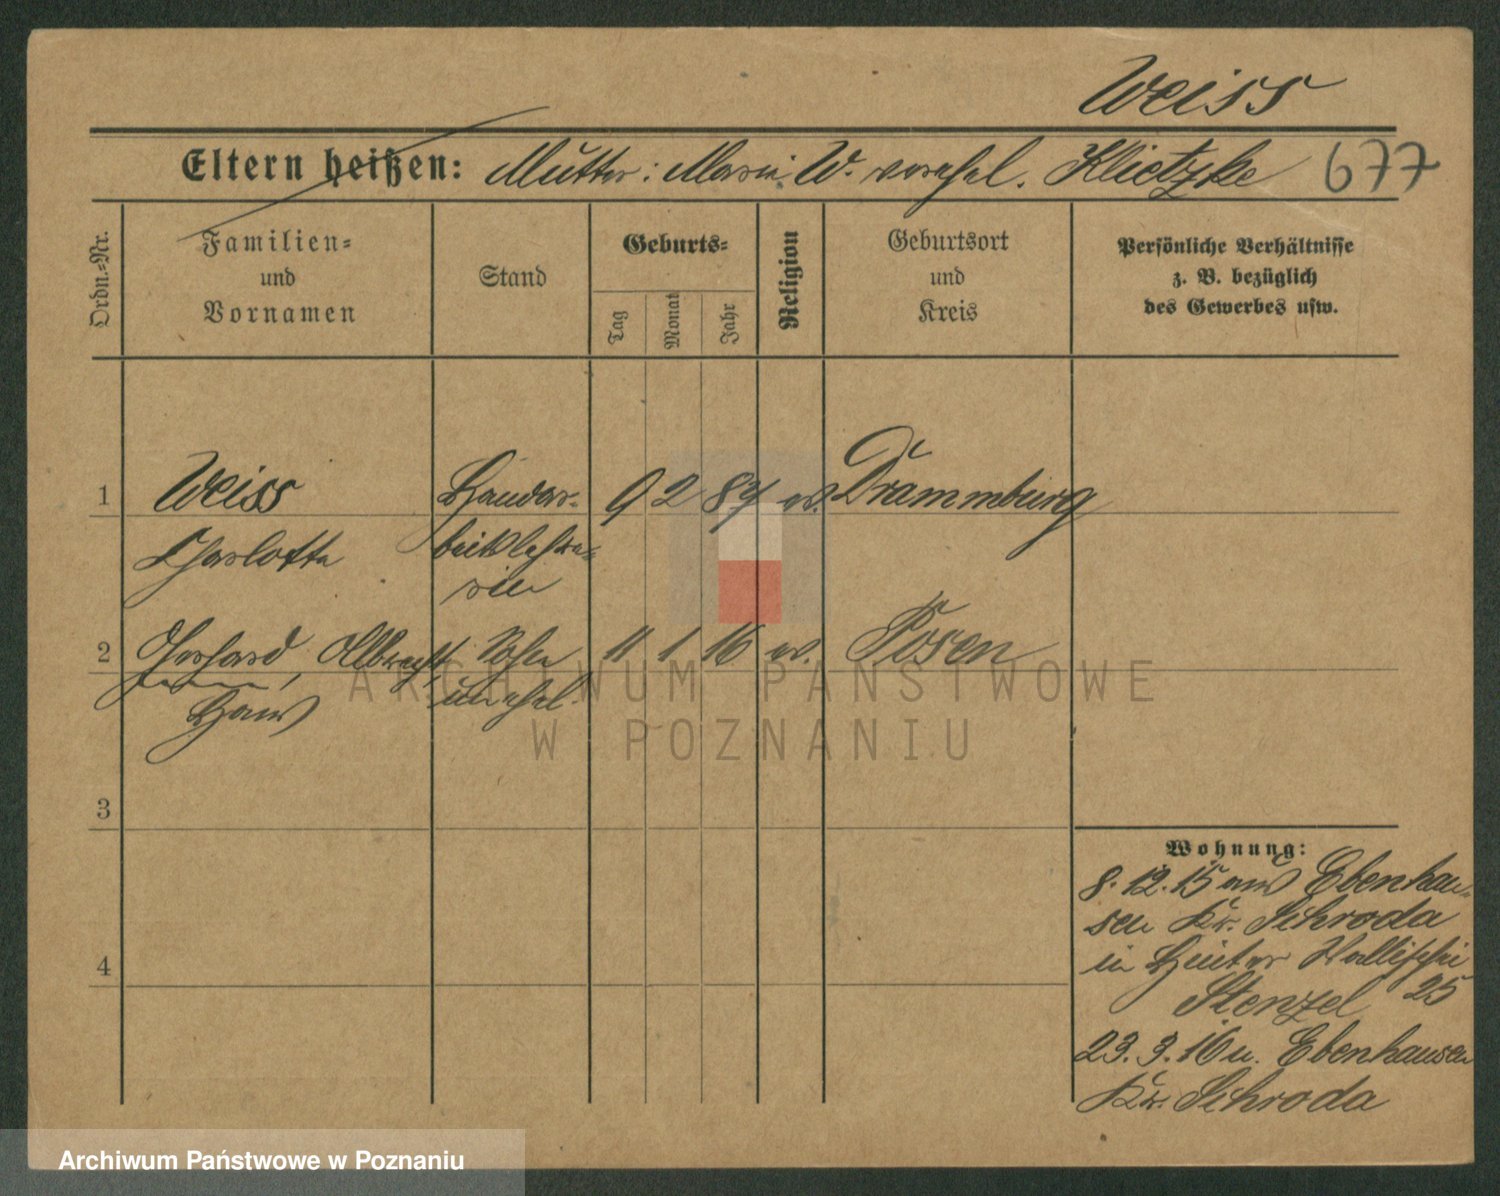 Weiss
Eltern heißen: Mutter: Marie W. vorehel. Klietzke 677
Ordn.-Nr.
Familien-
und
Vornamen
Stand
Geburts-
Tag
Monat
Jahr
Religion
Geburtsort
und
Kreis
Persönliche Verhältnisse
z. B. bezüglich
des Gewerbes usw.
1 Weiss Handar- 9 2 87 ev. Drammburg
Charlotte beitslehre-
rin
2 Gerhard, Albrecht, Sohn 11 1 16 ev. Posen
Hans unehel.
3
4
Wohnung:
8.12.15 aus Ebenhau-
sen Kr. Schroda
in Hinter Wallischei
Stenzel 25
23.3.16 n. Ebenhausen
Kr. Schroda
ARCHIWUM PAŃSTWOWE
W POZNANIU
Archiwum Państwowe w Poznaniu